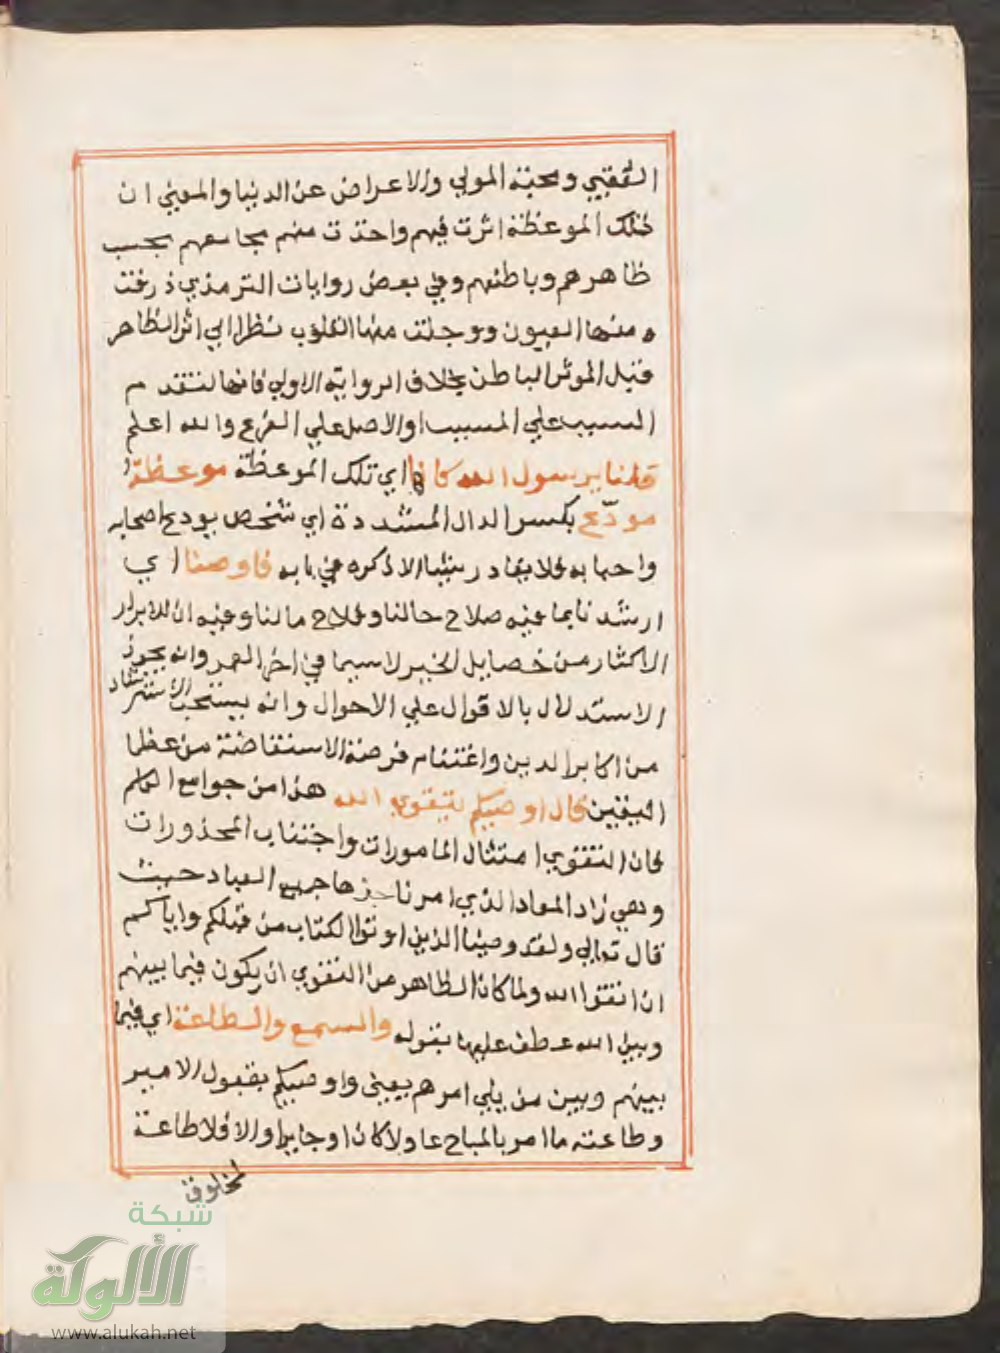 العقبي ومحبة المولي والاعراض عن الدنيا والمعني ان
تلك الموعظة اثرت فيهم واخذت منهم مجامعهم بحسب
ظاهرهم وباطنهم وفي بعض روايات الترمذي ذرفت
منها العيون ووجلت منها القلوب نظرا الي اثر الظاهر
قبل الموثر الباطن بخلاف الرواية الاولي فانها لتقدم
السبب علي المسبب او الاصل علي الفرع والله اعلم
قلنا يرسول الله كانها اي تلك الموعظة موعظة
مودّع بكسر الدال المشددة اي شخص يودع اصحابه
واحبابه فلا يغادر شيا الا ذكره في بابه فاوصنا اي
ارشدنا بما فيه صلاح حالنا وفلاح مالنا وفيه ان للابرار
الاكثار من خصايل الخير لاسيما في اخر العمر وانه يجوز
الاستدلال بالاقوال علي الاحوال وانه يستحب الاسترشاد
من اكابر الدين واغتنام فرصة الاستفاضة من عظما
اليقين قال اوصيكم بتقوي الله هذا من جوامع الكلم
فان التقوي امتثال المامورات واجتناب المحذورات
وهي زاد المعاد الذي امر ناجزها جميع العباد حيث
قال تعالي ولقد وصينا الذين اوتوا الكتاب من قبلكم واياكم
ان اتقوا الله ولما كان الظاهر من التقوي ان يكون فيما بينهم
وبين الله عطف عليها بقوله والسمع والطاعة اي فيما
بينهم وبين من يلي امرهم يعني واوصيكم بقبول الامير
وطاعته ما امر بالمباح عادلا كان او جايرا والا فلا طاعة
لمخلوق
شبكة
الألوكة
www.alukah.net